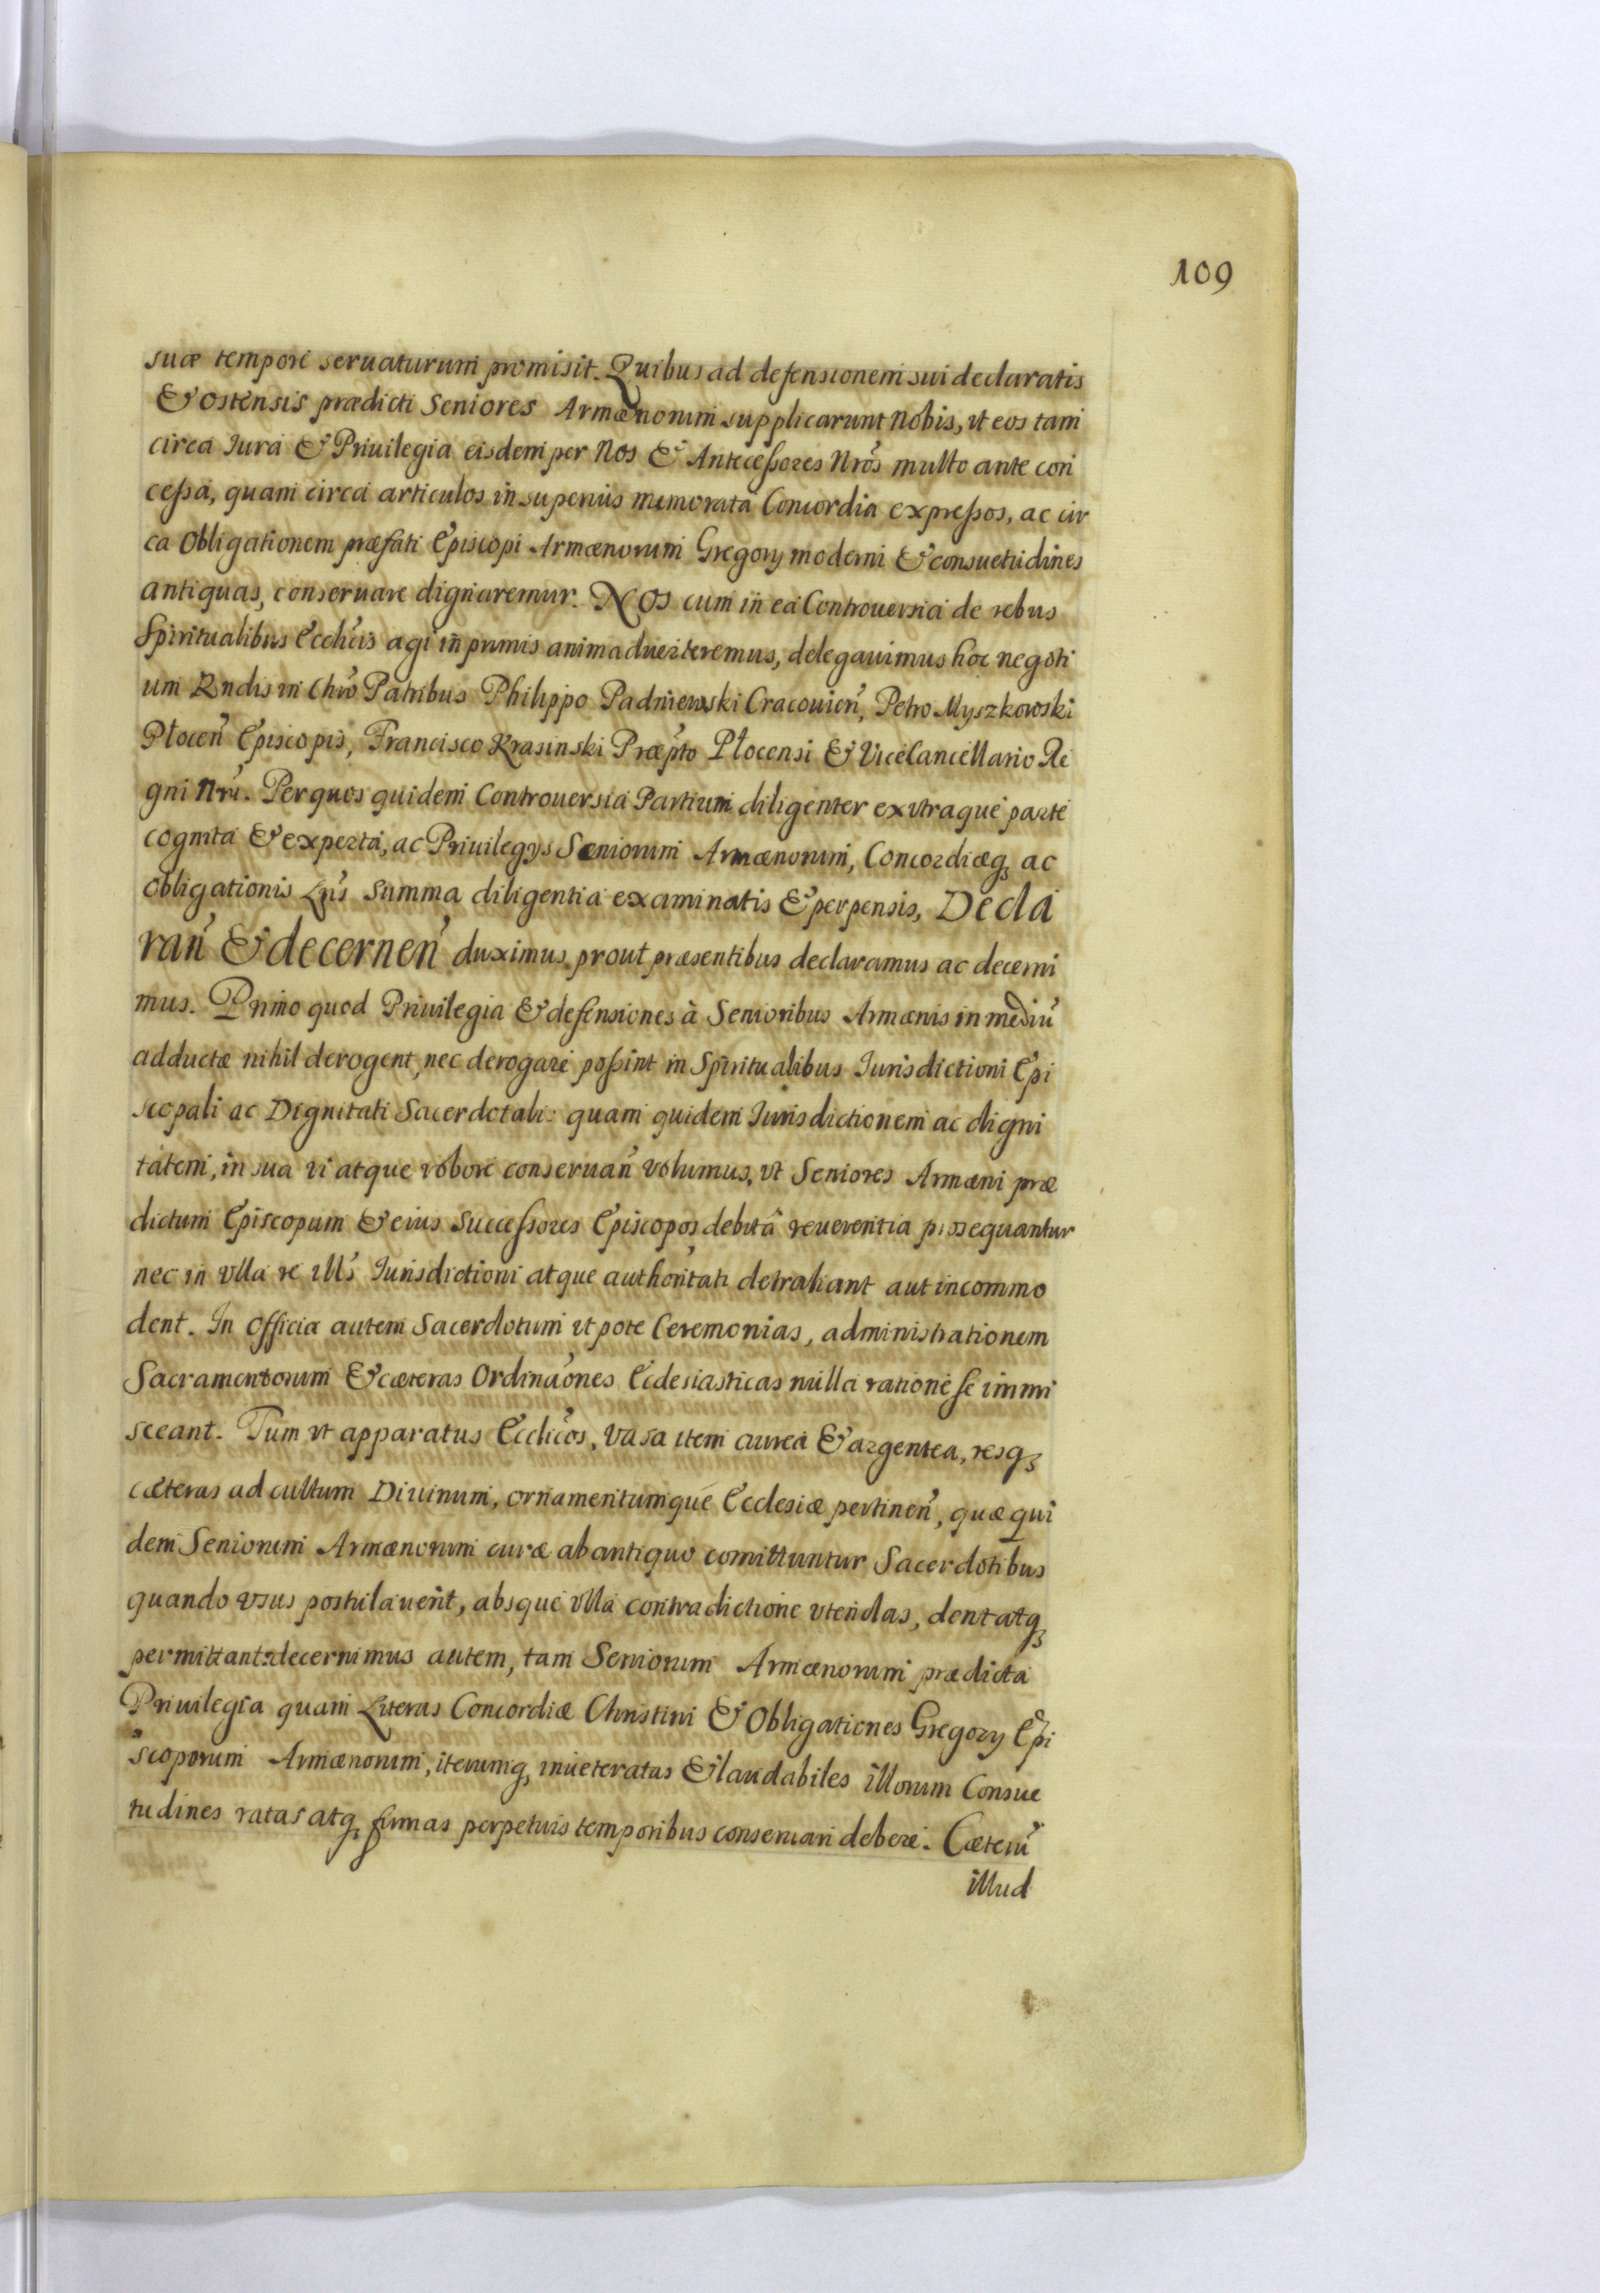 109
suæ tempore seruaturum promisit. Quibus ad defensionem sui declaratis
& ostensis prædicti Seniores Armænorum supplicarunt Nobis, vt eos tam
circa Iura & Priuilegia eisdem per Nos & Antecessores Nrõs multo ante con
cessa, quam circa articulos in superius memorata Concordia expressos, ac cir
ca Obligationem præfati Episcopi Armænorum Gregorij moderni & consuetudines
antiquas, conseruare dignaremur. NOS cum in ea Controuersia de rebus
Spiritualibus Ecclicis agi in primis animaduerteremus, delegauimus hoc negoti
um Rndis in Chro Patribus Philippo Padniewski Cracouien̄, Petro Myszkowski
Płocen̄ Episcopis, Francisco Krasinski Præpto Płocensi & ViceCancellario Re
gni Nri. Per quos quidem Controuersia Partium diligenter ex vtraque parte
cognita & experta, ac Priuilegijs Sæniorum Armænorum, Concordiæq; ac
Obligationis Lris summa diligentia examinatis & perpensis, Decla
ran̄ & decernen̄ duximus, prout præsentibus declaramus ac decerni
mus. Primo quod Priuilegia & defensiones à Senioribus Armænis in mediū
adductæ nihil derogent, nec derogare possint in Spiritualibus Iurisdictioni Epi
scopali ac Dignitati Sacerdotali: quam quidem Iurisdictionem ac digni
tatem, in sua vi atque robore conseruan̄ volumus, vt Seniores Armæni præ
dictum Episcopum & eius Successores Episcopos debitâ reuerentia prosequantur
nec in vlla re illis Iurisdictioni atque authoritati detrahant aut incommo
dent. In Officia autem Sacerdotum vt pote Ceremonias, administrationem
Sacramentorum & cæteras Ordinãones Ecclesiasticas nulla ratione se immi
sceant. Tum vt apparatus Ecclicos, vasa item aurea & argentea, resq;
cæteras ad cultum Diuinum, ornamentumque Ecclesiæ pertinen̄, quæ qui
dem Seniorum Armænorum curæ ab antiquo comittuntur Sacerdotibus
quando vsus postulauerit, absque vlla contradictione vtendas, dent atq;
permittant: decernimus autem, tam Seniorum Armænorum prædicta
Priuilegia quam Literas Concordiæ Christini & Obligationes Gregorij Epi
scoporum Armænorum, iterumq; inueteratas & laudabiles illorum Consue
tudines ratas atq; firmas perpetuis temporibus conseruari debere. Cæterū
illud